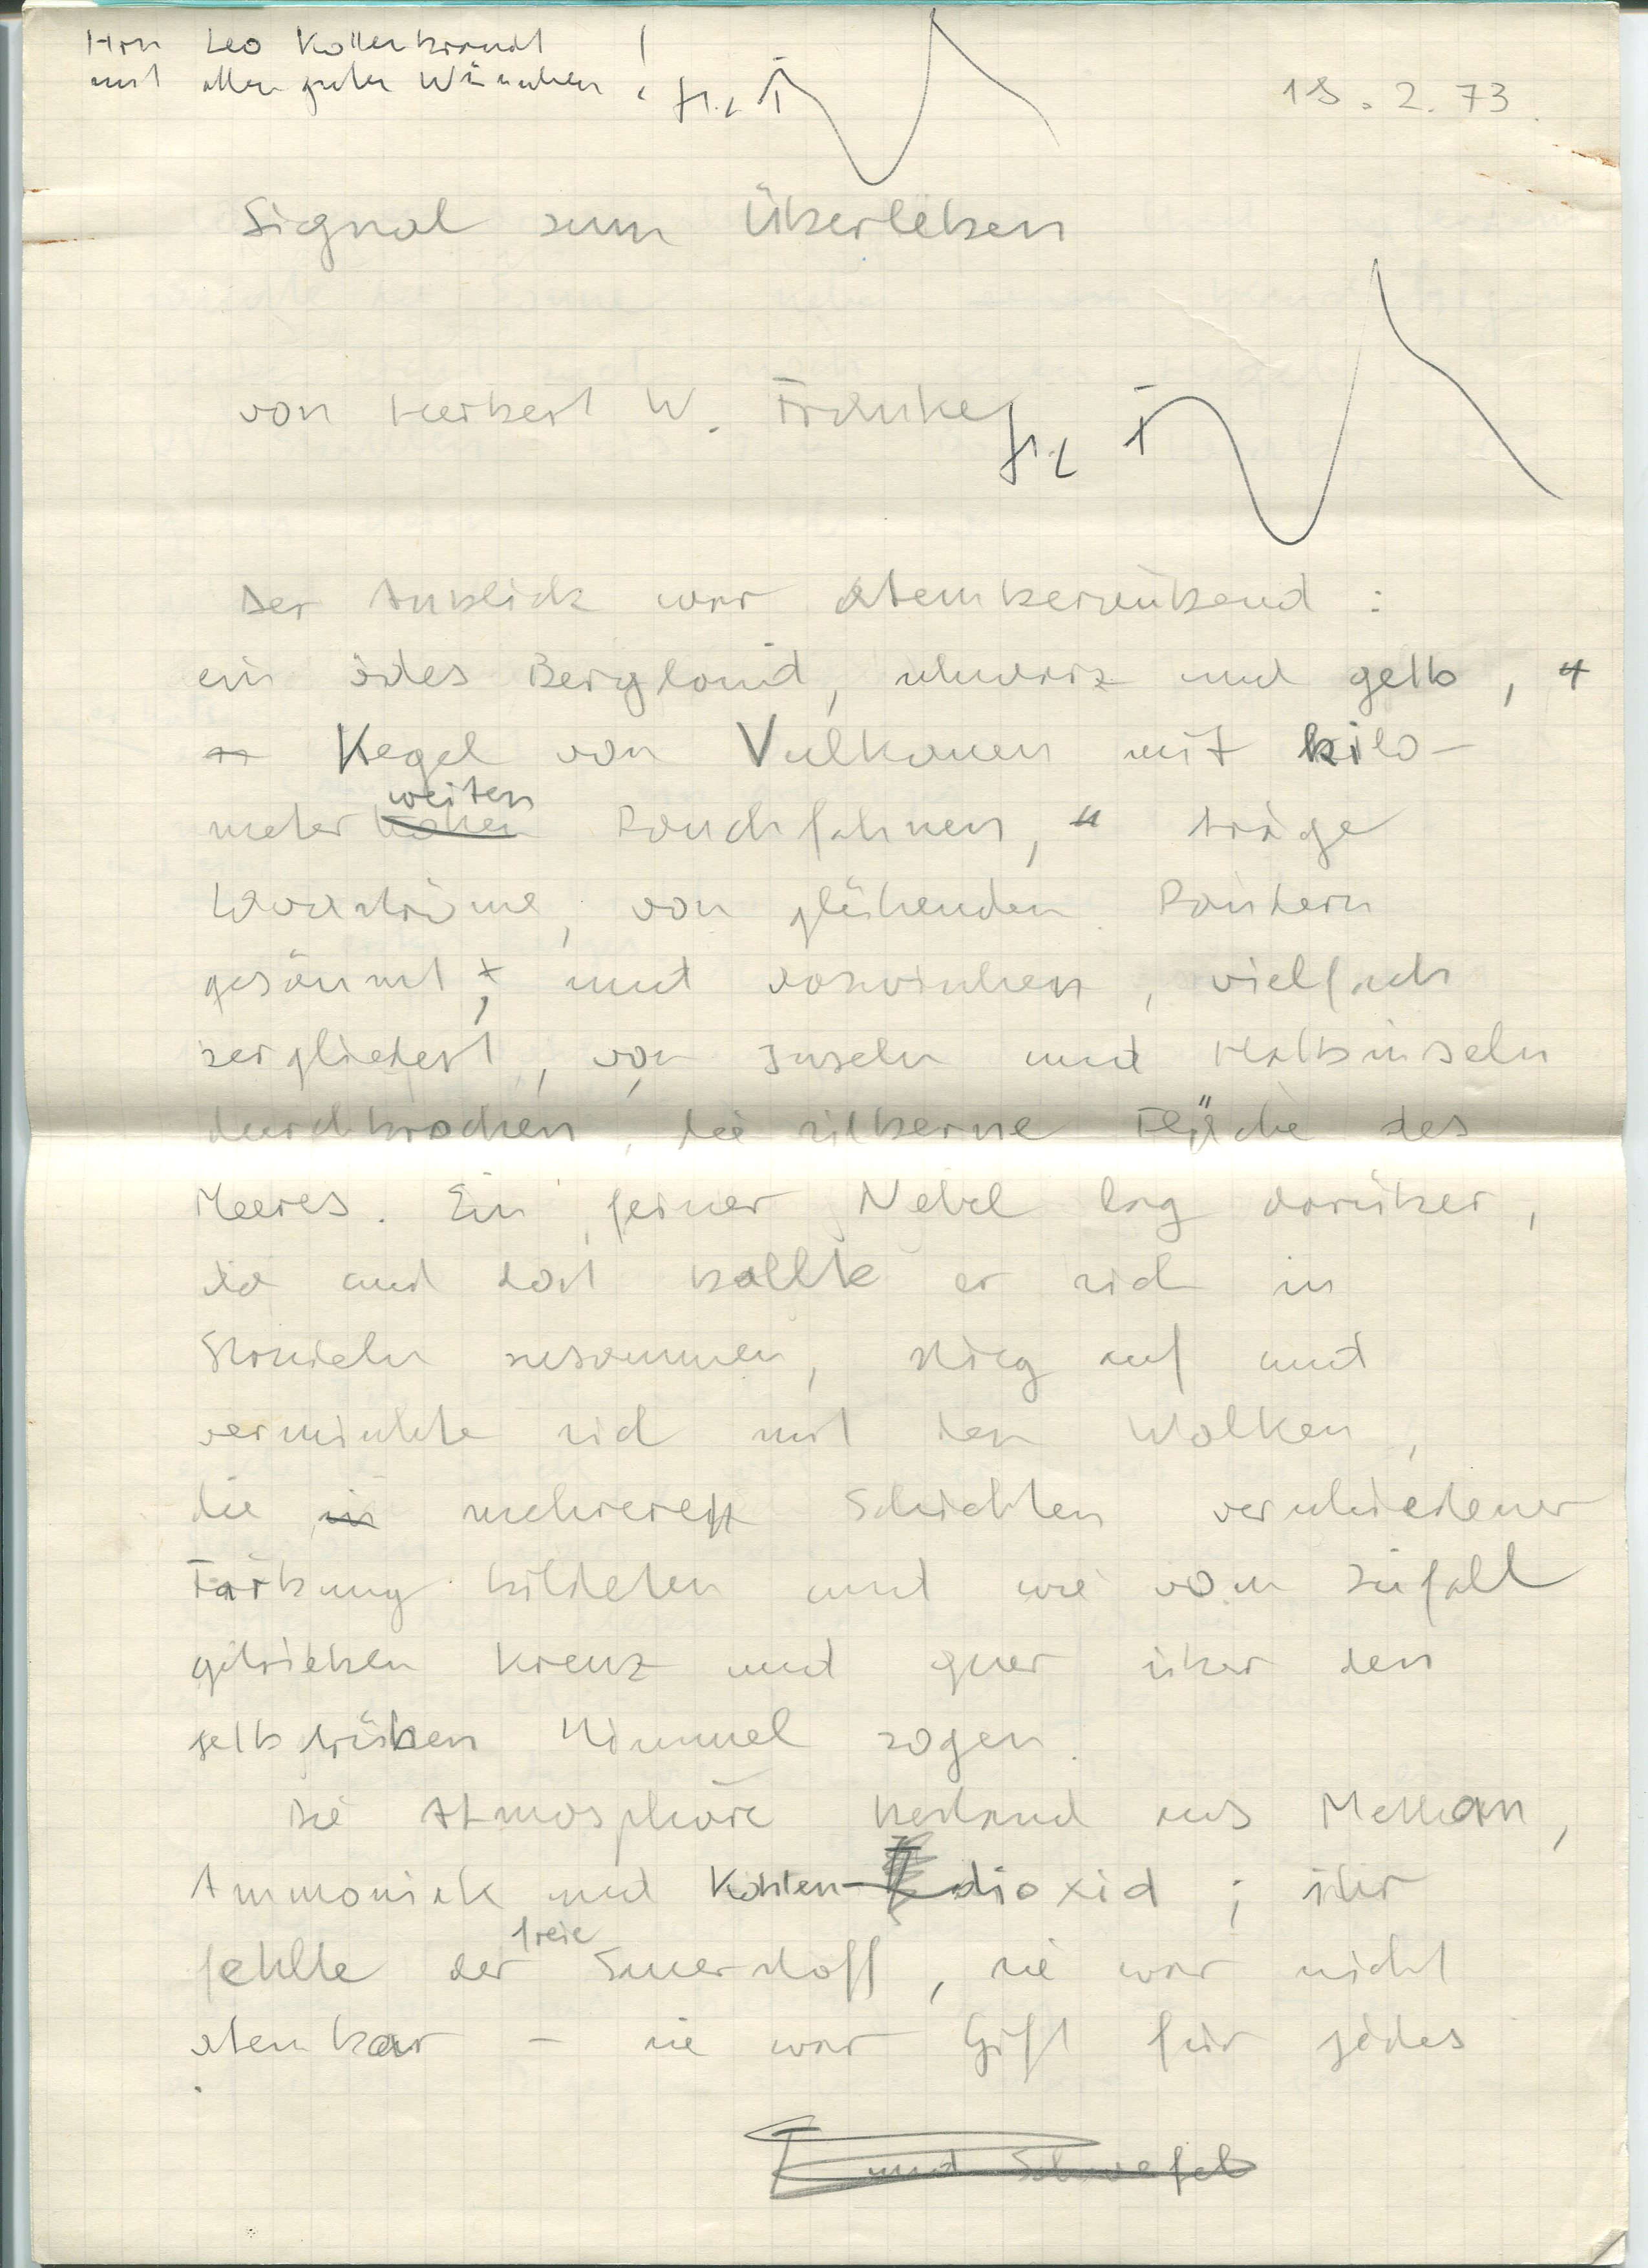 Hrn Leo Kollenbrandt !
mit allen guten Wünschen !
18.2.73.
Signal zum Überleben
von Herbert W. Franke
Der Anblick war atemberaubend :
ein ödes Bergland, schwarz und gelb,
Kegel von Vulkanen mit kilo-
weiten
meter hohen Rauchfahnen, träge
Lavaströme, von glühenden Rändern
gesäumt; und dazwischen, vielfach
zergliedert, von Inseln und Halbinseln
durchbrochen, die silberne Fläche des
Meeres. Ein feiner Nebel lag darüber,
da und dort ballte er sich in
Strudeln zusammen, stieg auf und
vermischte sich mit den Wolken,
die in mehreren Schichten verschiedener
Färbung bildeten und wie vom Zufall
getrieben kreuz und quer über den
gelbtrüben Himmel zogen.
Die Atmosphäre bestand aus Methan,
Ammoniak und Kohlen-dioxid ; ihr
freie
fehlte der Sauerstoff, sie war nicht
atembar – sie war Gift für jedes
und Schwefel